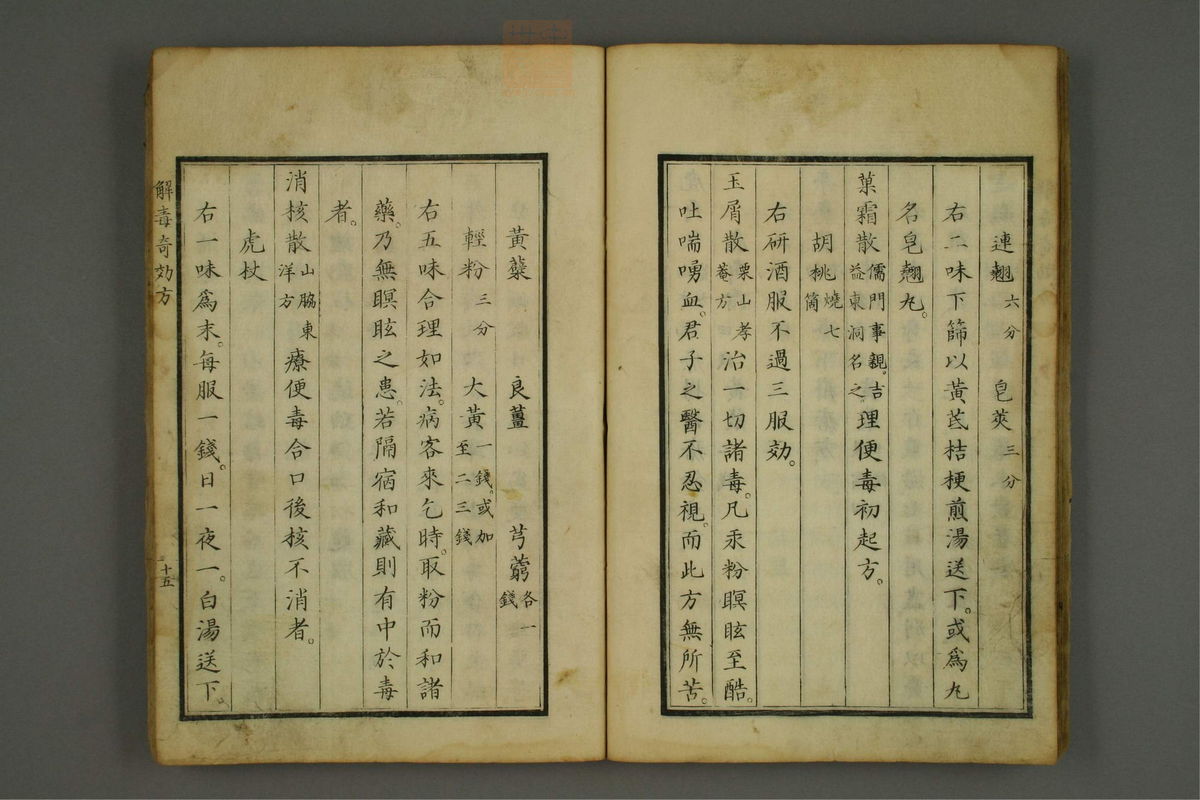 連翹六分 皂莢三分
右二味下篩以黃芪桔梗煎湯送下。或爲丸
名皂翹丸。
菓霜散儒門事親。吉益東洞名之。理便毒初起方。
胡桃燒七箇
右研酒服不過三服効。
玉屑散栗山孝菴方治一切諸毒。凡汞粉瞑眩至酷。
吐喘嘔血。君子之醫不忍視。而此方無所苦。
黃蘗 良薑 芎藭各一錢
輕粉三分 大黃一錢。或加至二三錢
右五味合理如法。病客來乞時。取粉而和諸
藥。乃無瞑眩之患。若隔宿和藏則有中於毒
者。
消核散山脇東洋方療便毒合口後核不消者。
虎杖
右一味爲末。每服一錢。日一夜一。白湯送下。
解毒奇効方
三十五